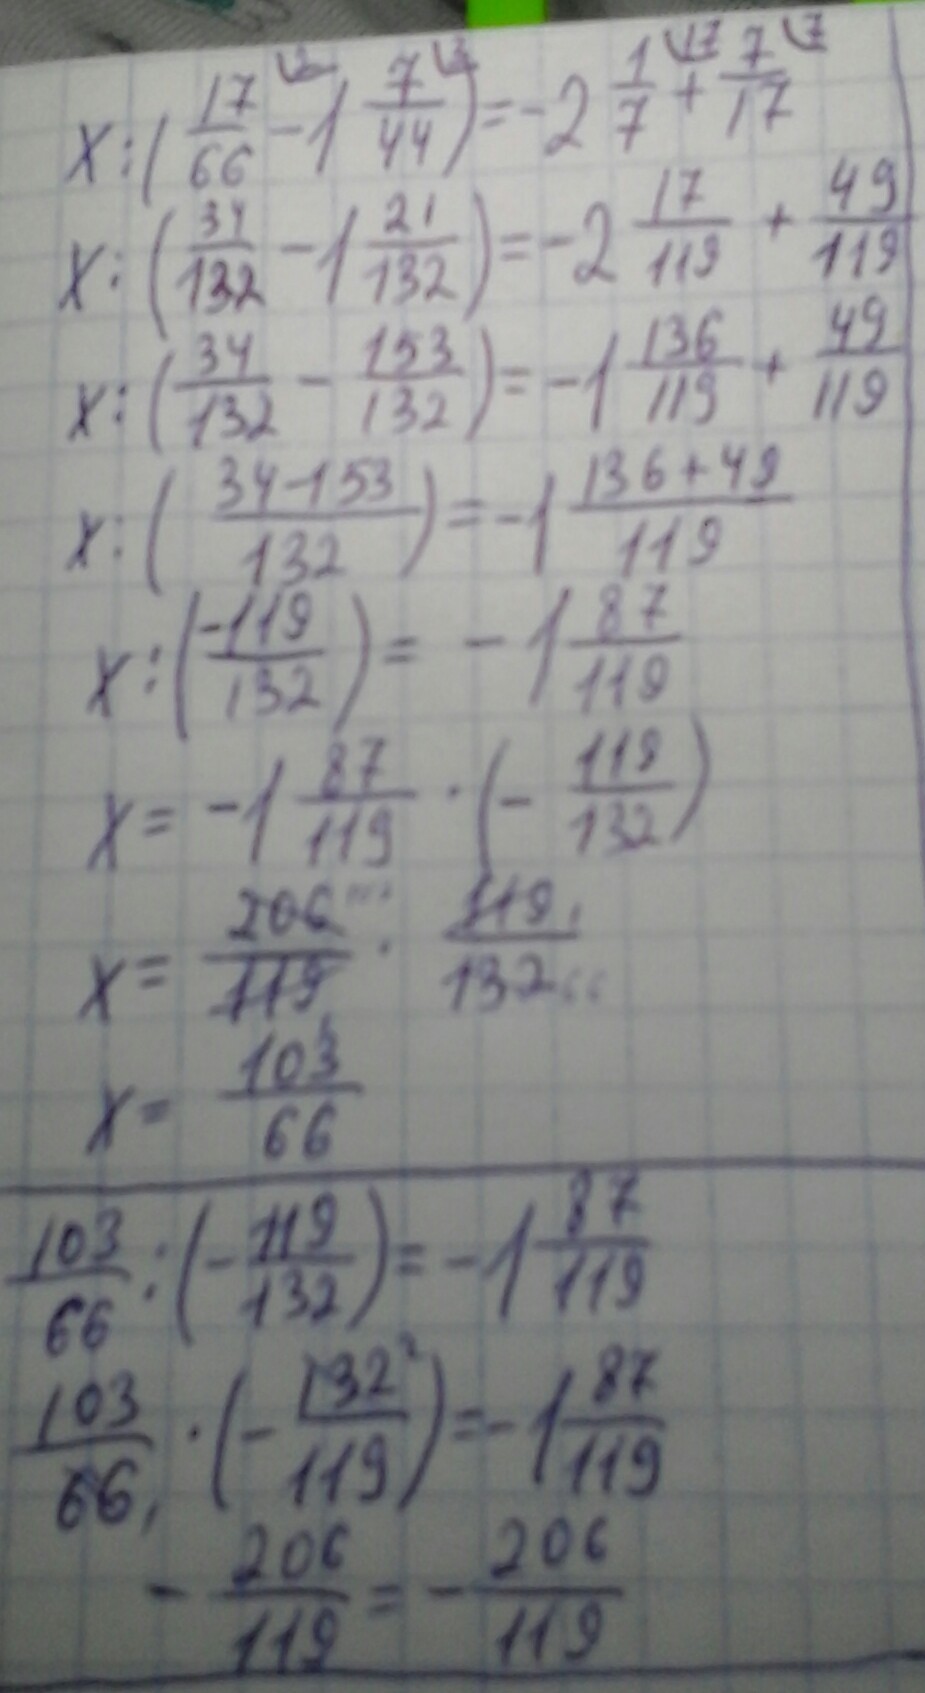 x:(17/66 \2 - 1 7/44 \3) = -2 1/7 \17 + 7/17 \7
x:(34/132 - 1 21/132) = -2 17/119 + 49/119
x:(34/132 - 153/132) = -1 136/119 + 49/119
x:((34-153)/132) = -1 (136+49)/119
x:(-119/132) = -1 87/119
x = -1 87/119 · (-119/132)
x = 206/119 · 119/132
x = 103/66
103/66 : (-119/132) = -1 87/119
103/66 · (-132/119) = -1 87/119
-206/119 = -206/119